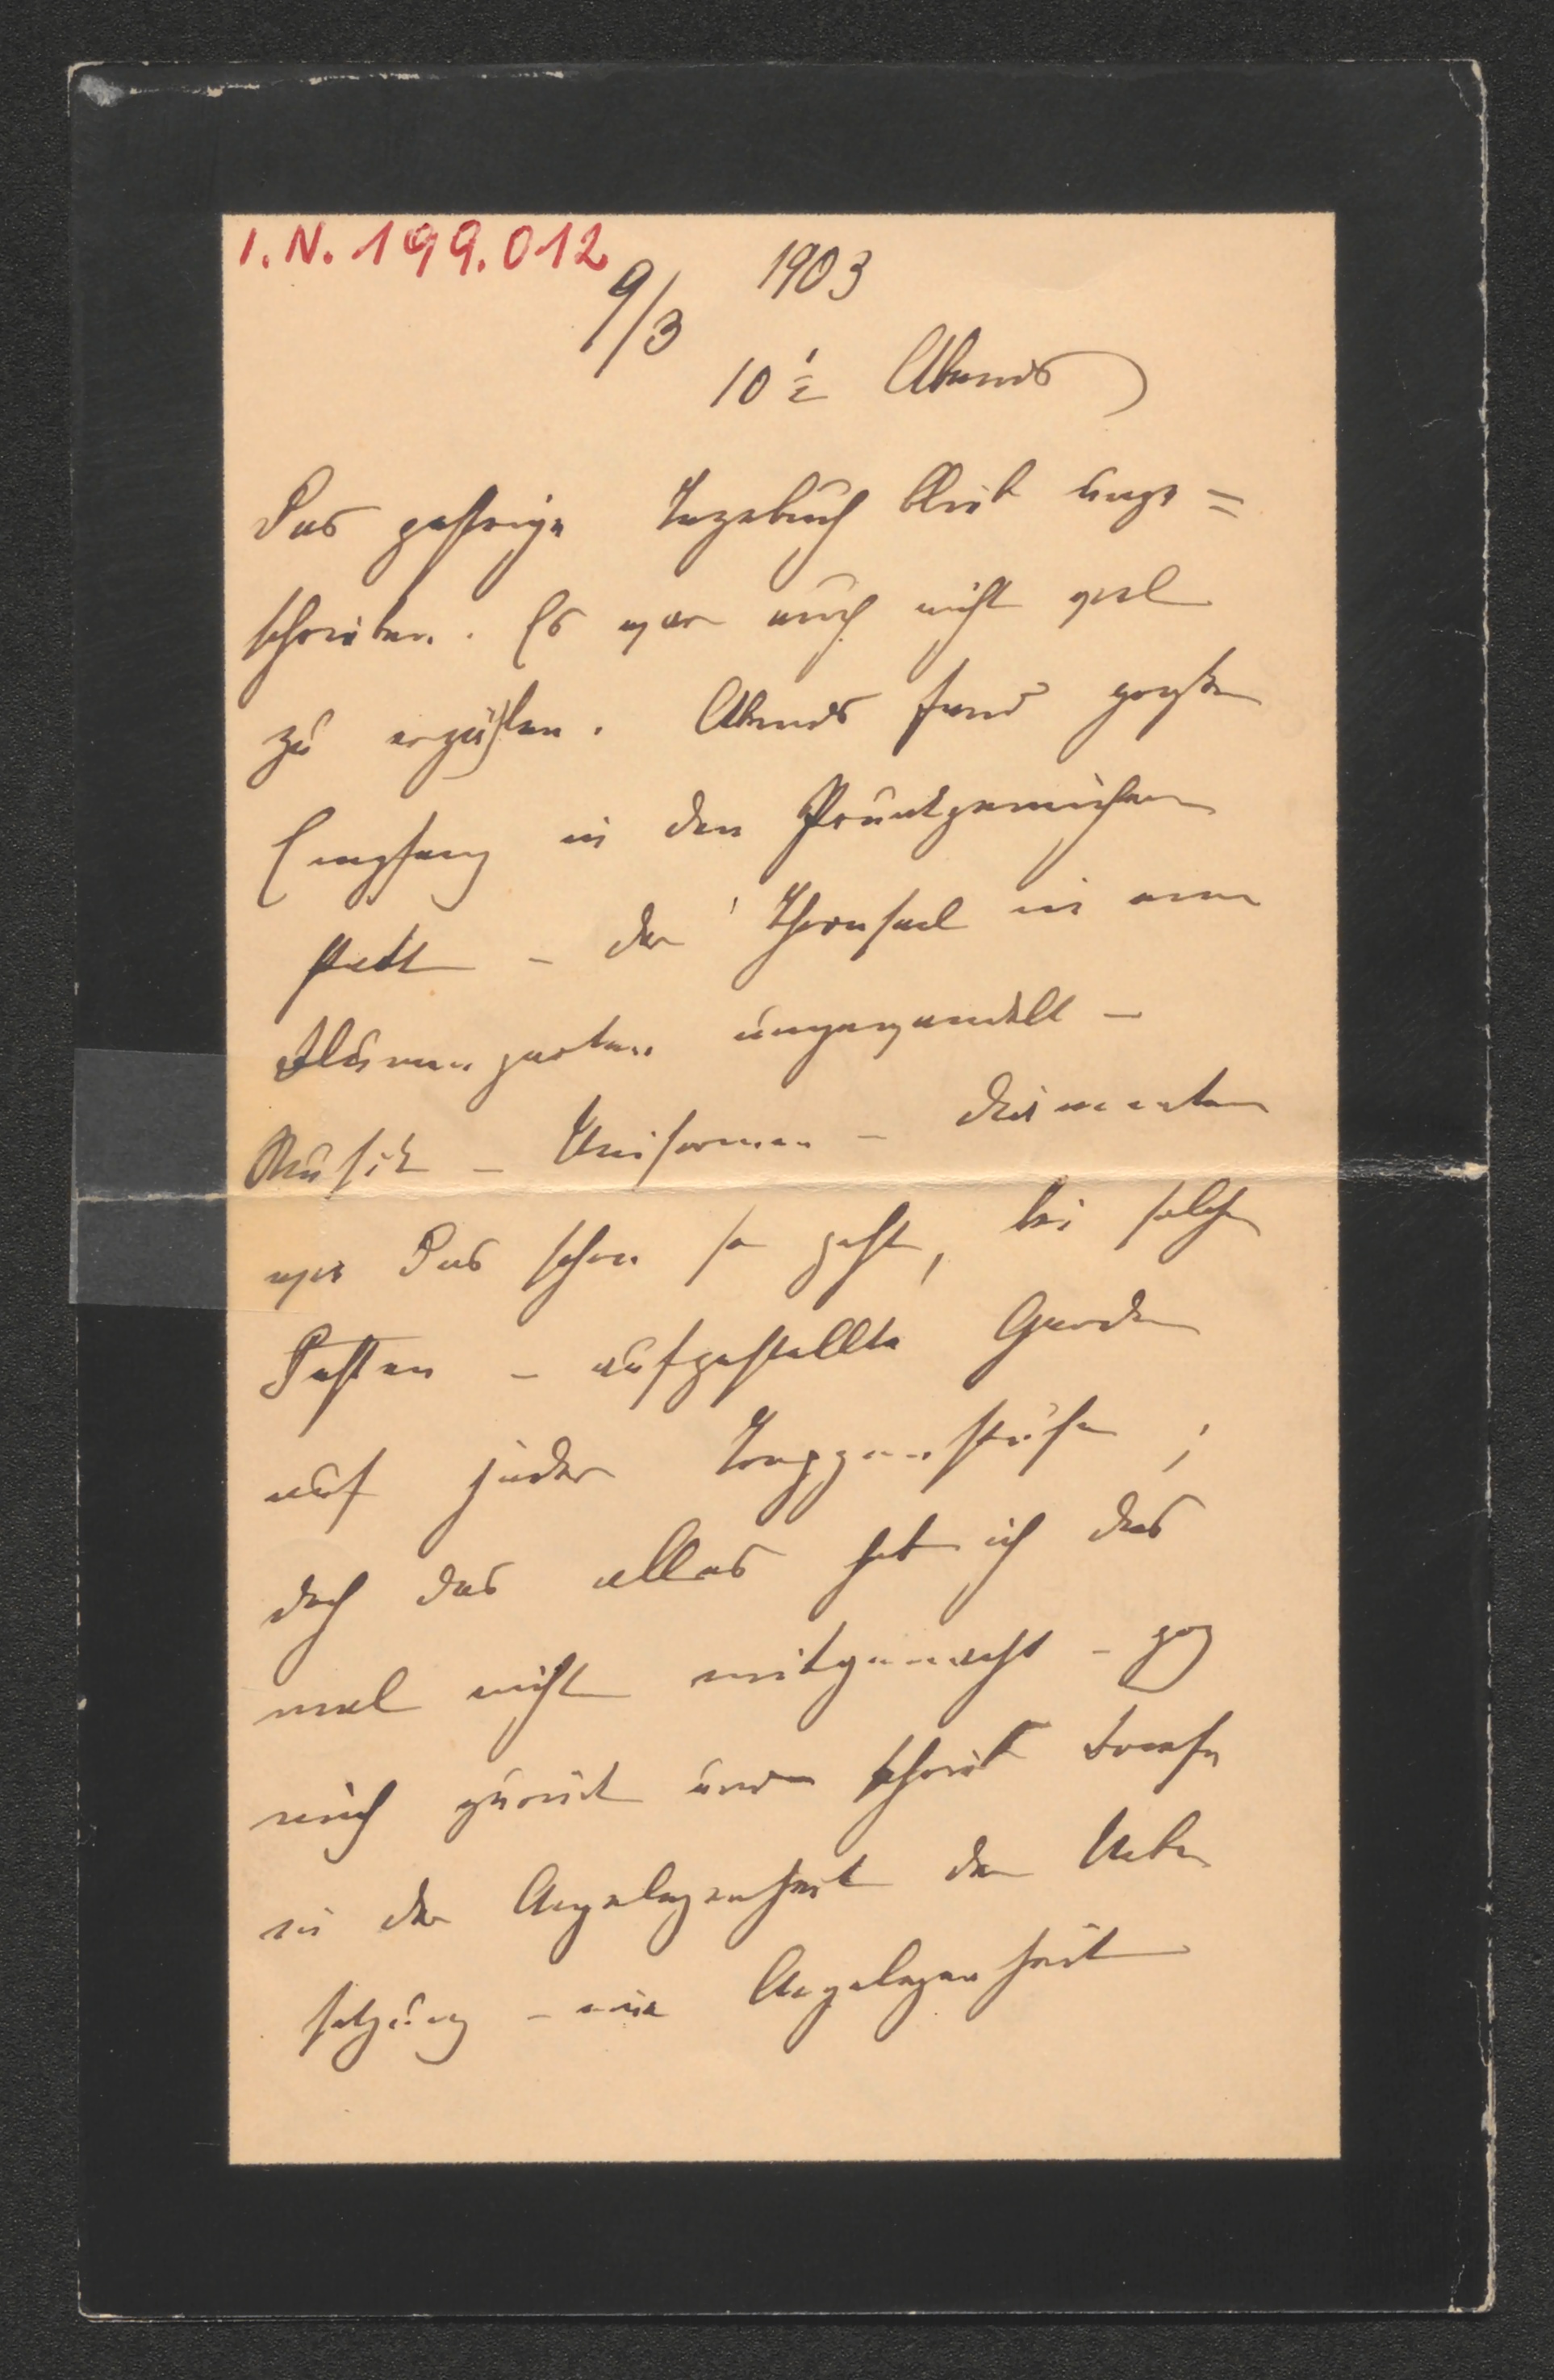 I.N. 199.012
9/3 1903
10 ½ Abends
Das gestrige Tagebuch blieb unge=
schrieben. Es war auch nicht viel
zu erzählen. Abends fand großer
Empfang in den Prunkgemächern
statt – der Thronsaal in einen
Blumengarten umgewandelt –
Musik – Uniformen – Diamanten
wie Das schon so geht, bei solchen
Festen – aufgestellte Garden
auf jeder Treppenstufe;
doch das alles hab ich dies
mal nicht mitgemacht – zog
mich zurück und schrieb Briefe
in der Angelegenheit der Ueber
setzung – eine Angelegenheit